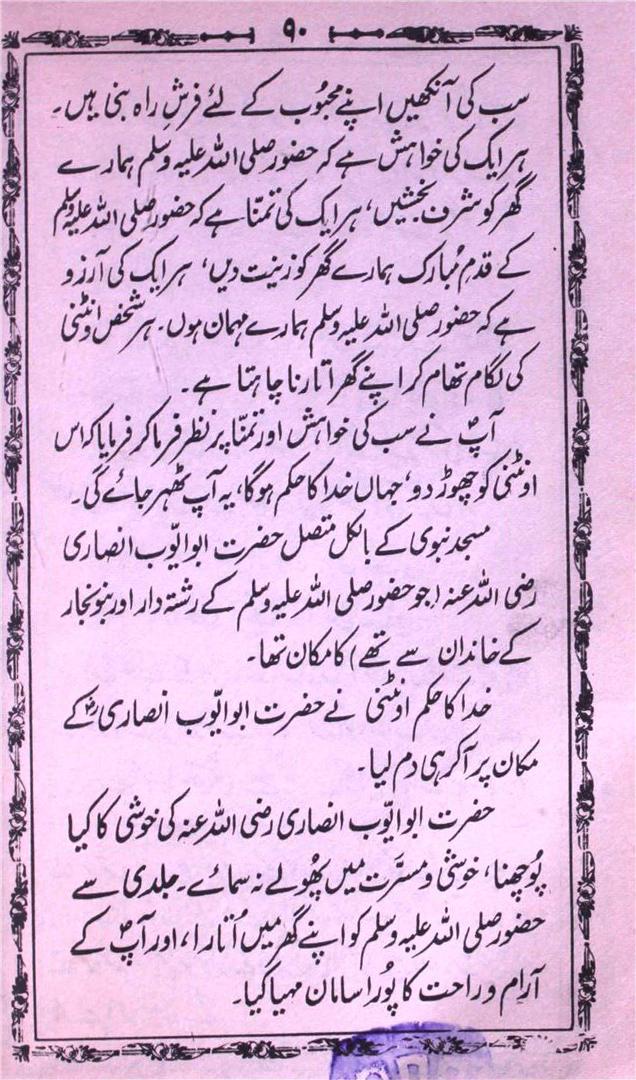 ۹۰
سب کی آنکھیں اپنے محبُوب کے لئے فرشِ راہ بنی ہیں۔
ہر ایک کی خواہش ہے کہ حضور صلی اللہ علیہ وسلم ہمارے
گھر کو شرف بخشیں، ہر ایک کی تمنّا ہے کہ حضور صلی اللہ علیہ وسلم
کے قدمِ مُبارک ہمارے گھر کو زینت دیں، ہر ایک کی آرزو
ہے کہ حضور صلی اللہ علیہ وسلم ہمارے مہمان ہوں۔ ہر شخص اونٹنی
کی لگام تھام کر اپنے گھر اُتارنا چاہتا ہے۔
آپؐ نے سب کی خواہش اور تمنّا پر نظر فرما کر فرمایا کہ اس
اونٹنی کو چھوڑ دو، جہاں خدا کا حکم ہوگا، یہ آپ ٹھہر جائے گی۔
مسجد نبوی کے بالکل متصل حضرت ابو ایّوب انصاری
رضی اللہ عنہ (جو حضور صلی اللہ علیہ وسلم کے رشتہ دار اور بنو نجار
کے خاندان سے تھے) کا مکان تھا۔
خدا کا حکم اونٹنی نے حضرت ابو ایّوب انصاریؓ کے
مکان پر آکر ہی دم لیا۔
حضرت ابو ایّوب انصاری رضی اللہ عنہ کی خوشی کا کیا
پُوچھنا، خوشی و مسرّت میں پھُولے نہ سمائے۔ جلدی سے
حضور صلی اللہ علیہ وسلم کو اپنے گھر میں اُتارا، اور آپؐ کے
آرام و راحت کا پُورا سامان مہیا کیا۔